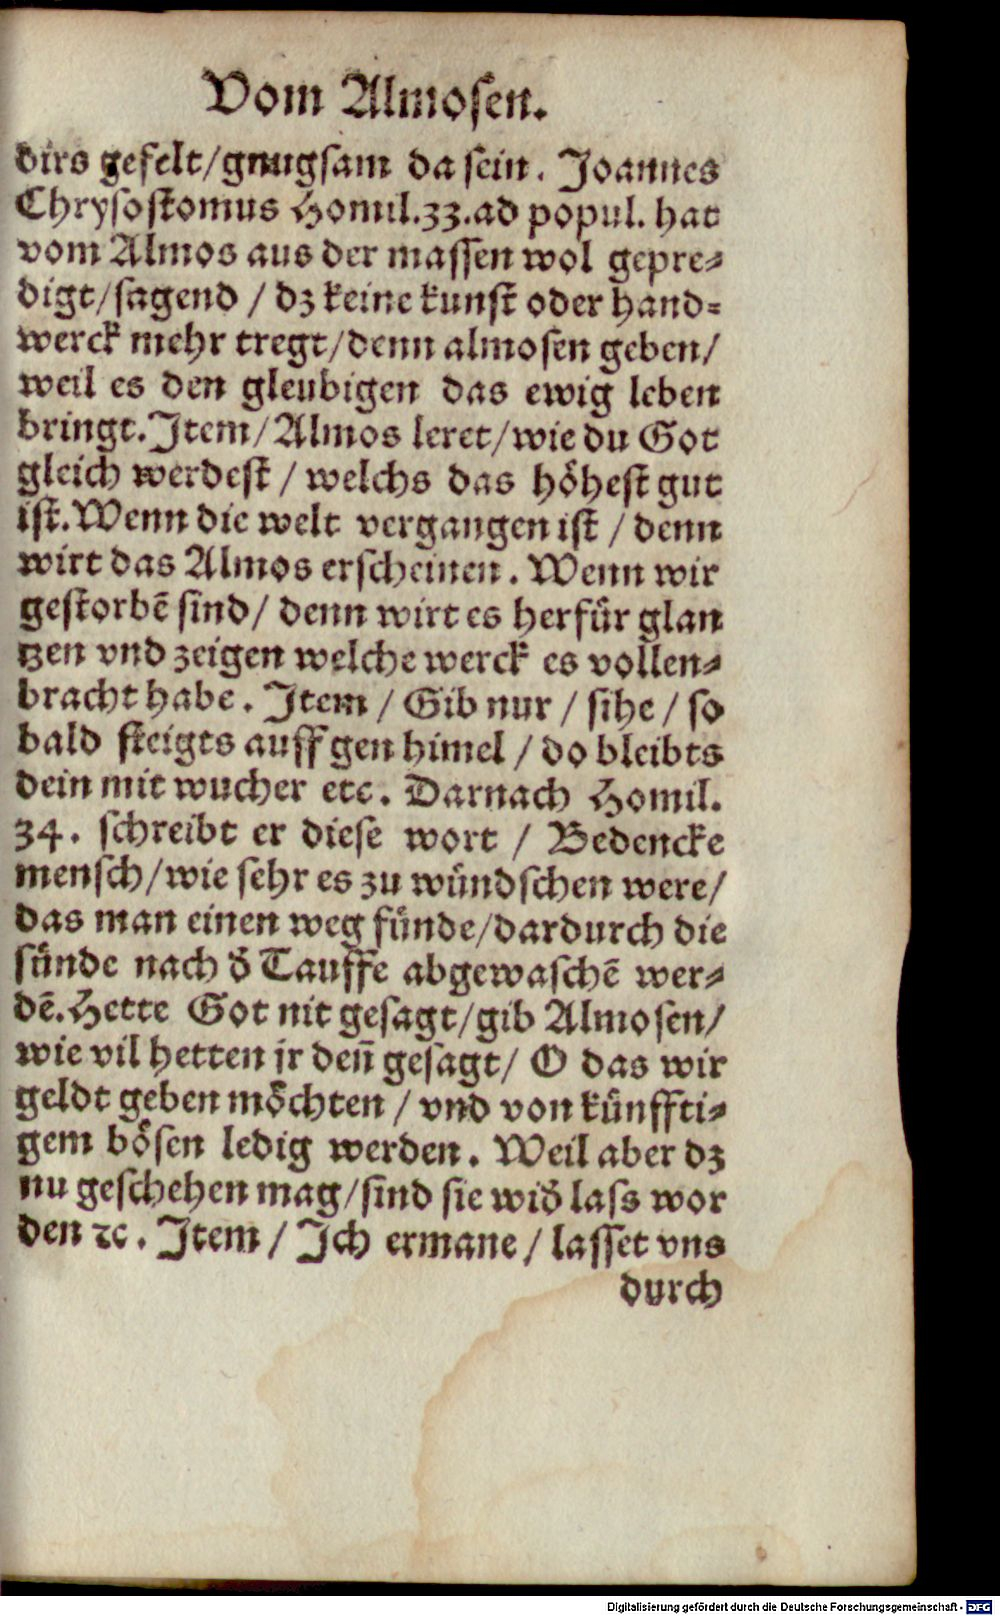 Vom Almosen.
dirs gefelt/gnugsam da sein. Joannes
Chrysostomus Homil.33.ad popul. hat
vom Almos aus der massen wol gepre-
digt/sagend / dz keine kunst oder hand-
werck mehr tregt/denn almosen geben/
weil es den gleubigen das ewig leben
bringt. Item/Almos leret/wie du Got
gleich werdest / welchs das höhest gut
ist. Wenn die welt vergangen ist / denn
wirt das Almos erscheinen. Wenn wir
gestorbē sind/ denn wirt es herfür glan
tzen vnd zeigen welche werck es vollen-
bracht habe. Item / Gib nur / sihe / so
bald steigts auff gen himel / do bleibts
dein mit wucher etc. Darnach Homil.
34. schreibt er diese wort / Bedencke
mensch/wie sehr es zu wündschen were/
das man einen weg fünde/dardurch die
sünde nach d̕ Tauffe abgewaschē wer-
dē. Hette Got nit gesagt/gib Almosen/
wie vil hetten jr den̄ gesagt/ O das wir
geldt geben möchten / vnd von künffti-
gem bösen ledig werden. Weil aber dz
nu geschehen mag/sind sie wid̕ lass wor
den ꝛc. Item / Ich ermane / lasset vns
durch
Digitalisierung gefördert durch die Deutsche Forschungsgemeinschaft - DFG